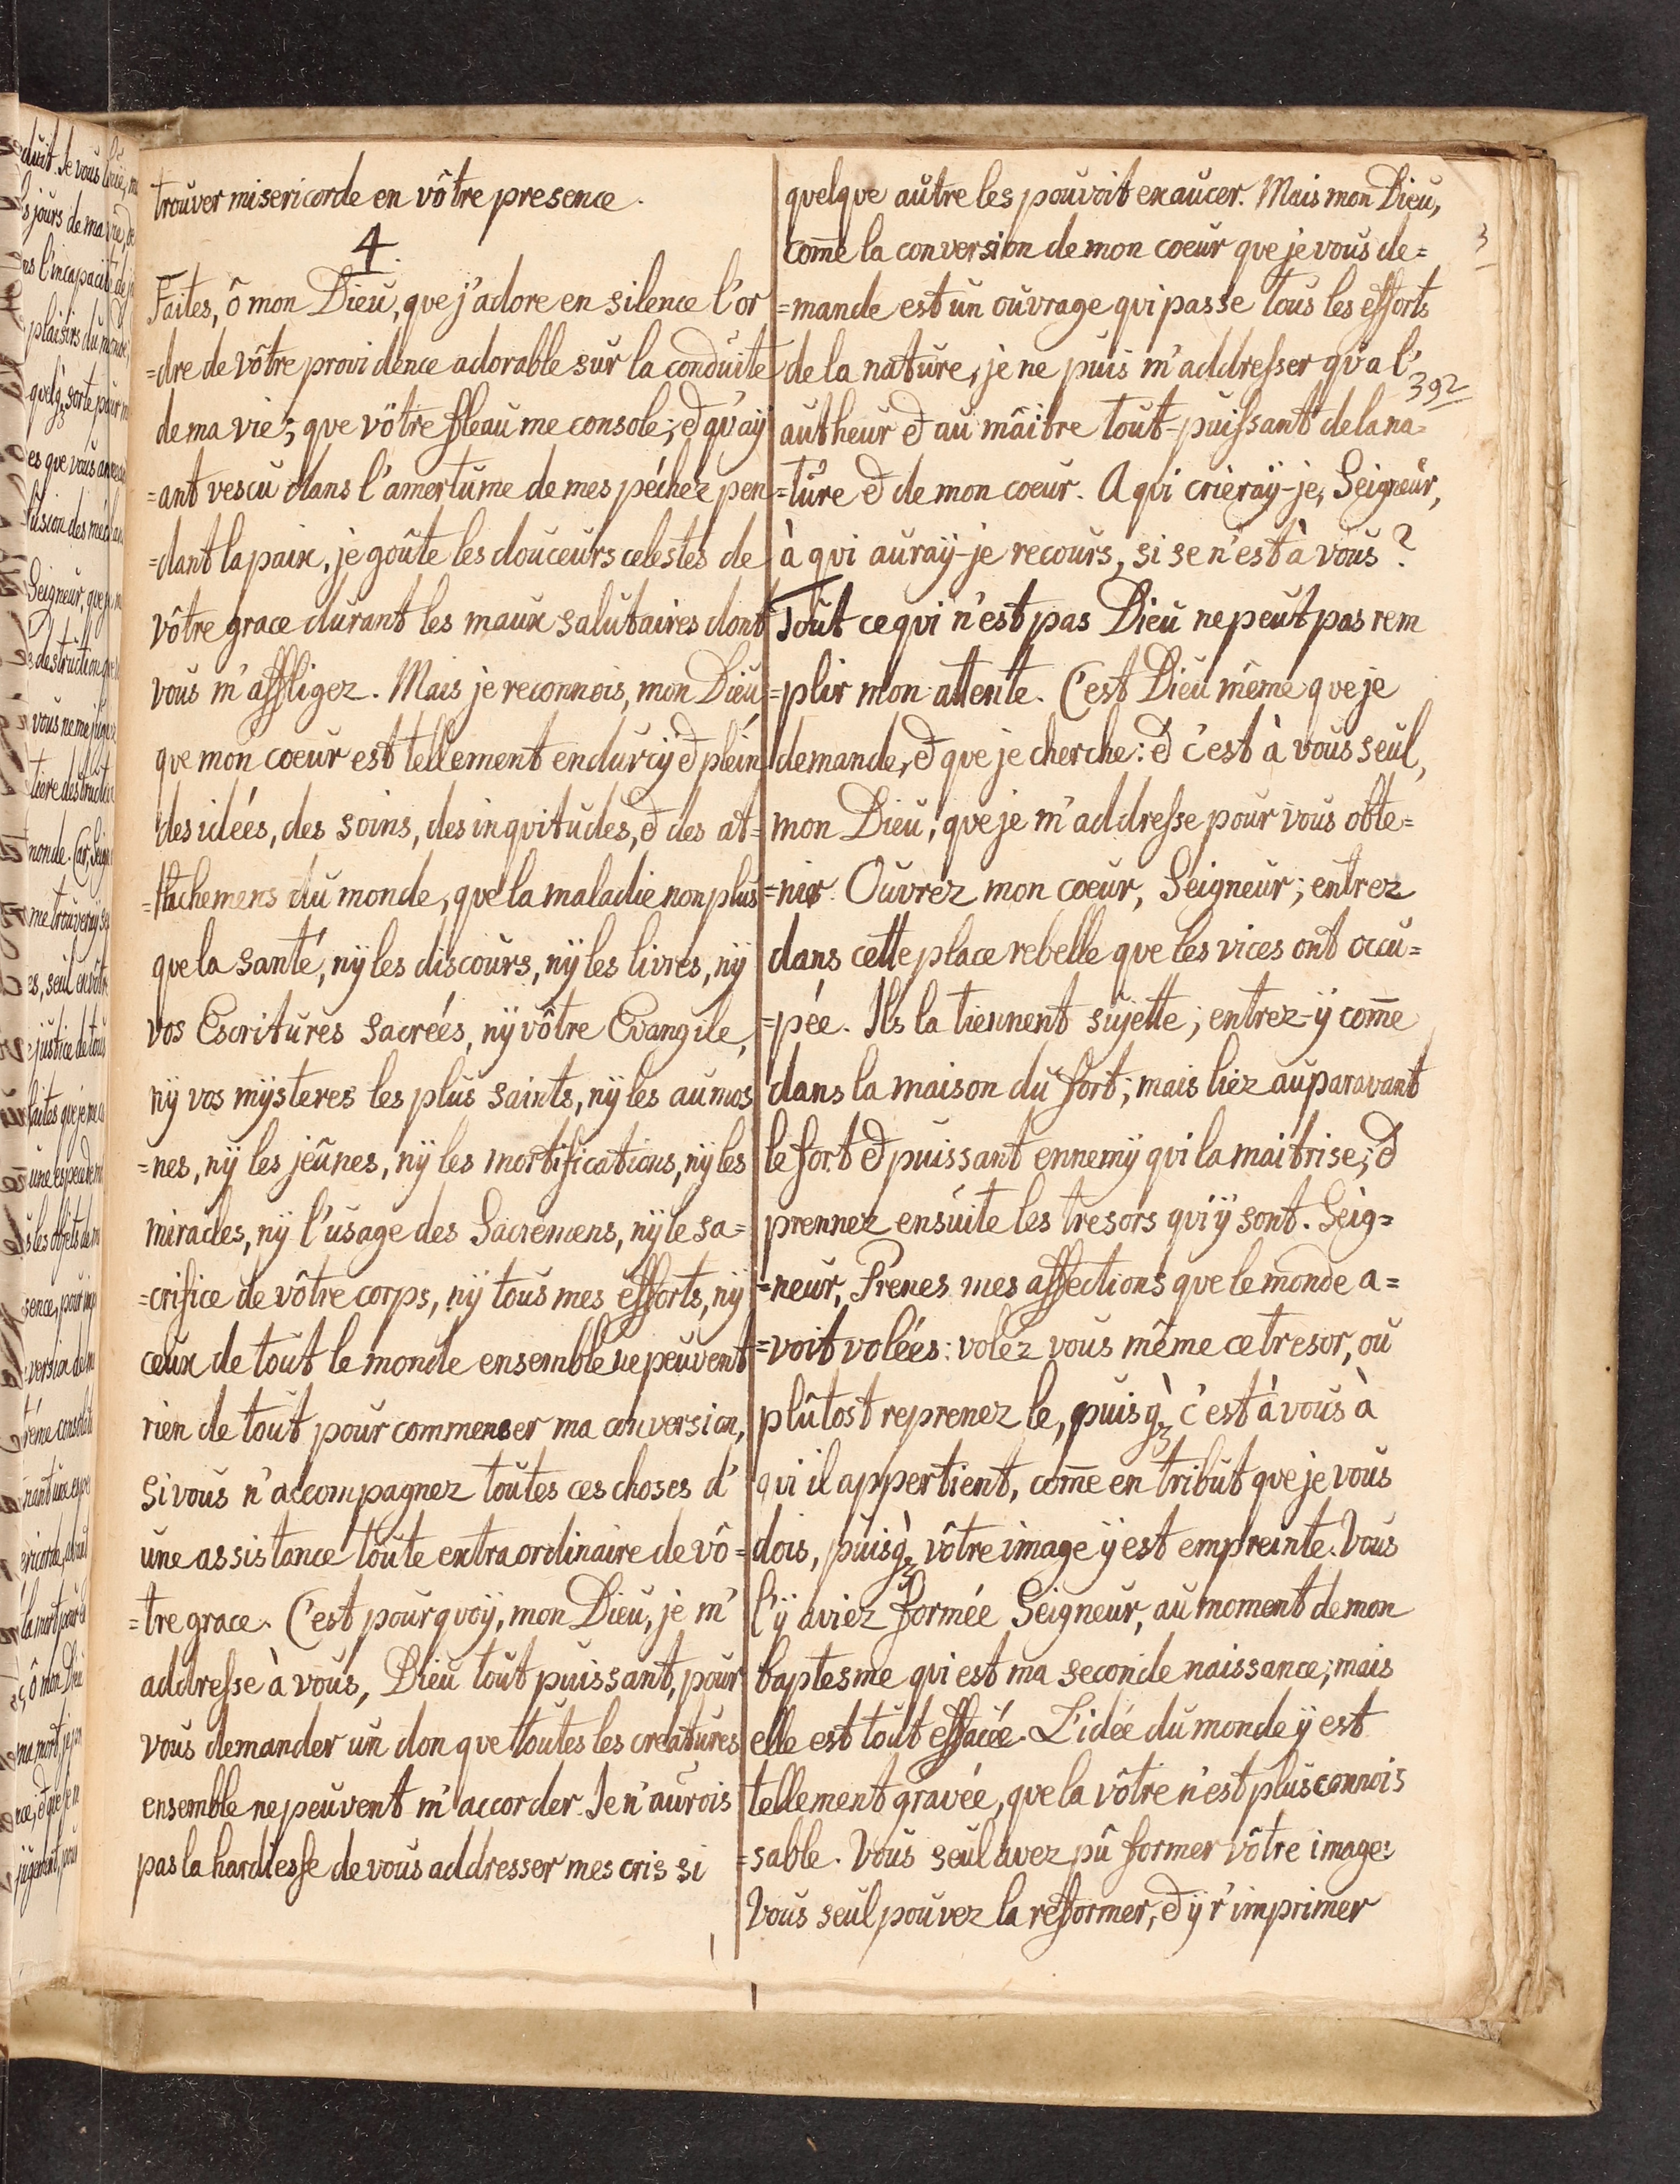 trouver misericorde en vôtre presence.
4.
Faites, ô mon Dieu, que j'adore en silence l'or
=dre de vôtre providence adorable sur la conduite
de ma vie; que vôtre fleau me console; & qu'aÿ
=ant vescu dans l'amertume de mes péchez pen
=dant la paix, je goûte les douceurs celestes de
vôtre grace durant les maux salutaires dont
vous m'affligez. Mais je reconnois, mon Dieu
que mon coeur est tellement endurcÿ & plein
des idées, des soins, des inqvitudes, & des at=
=tachemens du monde, que la maladie non plus
que la santé, nÿ les discours, nÿ les livres, nÿ
vos Escritures sacrées, nÿ vôtre Evangile,
nÿ vos mÿsteres les plus saints, nÿ les aumos
=nes, nÿ les jeûnes, nÿ les mortifications, nÿ les
miracles, nÿ l'usage des Sacremens, nÿ le sa=
=crifice de vôtre corps, nÿ tous mes efforts, nÿ
ceux de tout le monde ensemble ne peuvent
rien de tout pour commencer ma conversion,
si vous n'accompagnez toutes ces choses d'
une assistance toute extraordinaire de vô=
=tre grace. C'est pourquoÿ, mon Dieu, je m'
addresse à vous, Dieu tout puissant, pour
vous demander un don que toutes les creatures
ensemble ne peuvent m'accorder. Je n'aurois
pas la hardiesse de vous addresser mes cris si
quelque autre les pouvoit exaucer. Mais mon Dieu,
com̄e la conversion de mon coeur que je vous de=
=mande est un ouvrage qui passe tous les efforts
de la nature, je ne puis m'addresser qu'a l'
autheur & au mâitre tout-puissant de la na=
=ture & de mon coeur. A qui crieraÿ-je, Seigneur,
à qui auraÿ-je recours, si se n'est à vous?
Tout ce qui n'est pas Dieu ne peut pas rem
=plir mon attente. C'est Dieu même que je
demande, & que je cherche: & c'est à vous seul,
mon Dieu, que je m'addresse pour vous obte=
=nir. Ouvrez mon coeur, Seigneur; entrez
dans cette place rebelle que les vices ont occu=
=pée. Ils la tiennent sujette; entrez-ÿ com̄e
dans la maison du fort; mais liez auparavant
le fort & puissant ennemÿ qui la maitrise; &
prennez ensuite les tresors qui ÿ sont. Seig=
=neur, Prenes mes affections que le monde a=
=voit volées: volez vous même ce tresor, ou
plûtost reprenez le, puisq̀ꝫ c'est à vous à
qui il appertient, com̄e en tribut que je vous
dois, puisq̀ꝫ vôtre image ÿ est empreinte. Vous
l'ÿ aviez formée Seigneur, au moment de mon
baptesme qui est ma seconde naissance; mais
elle est tout effacée. L'idée du monde ÿ est
tellement gravée, que la vôtre n'est plus connois
=sable. Vous seul avez pû former vôtre image:
Vous seul pouvez la reformer, & ÿ r'imprimer
3
392